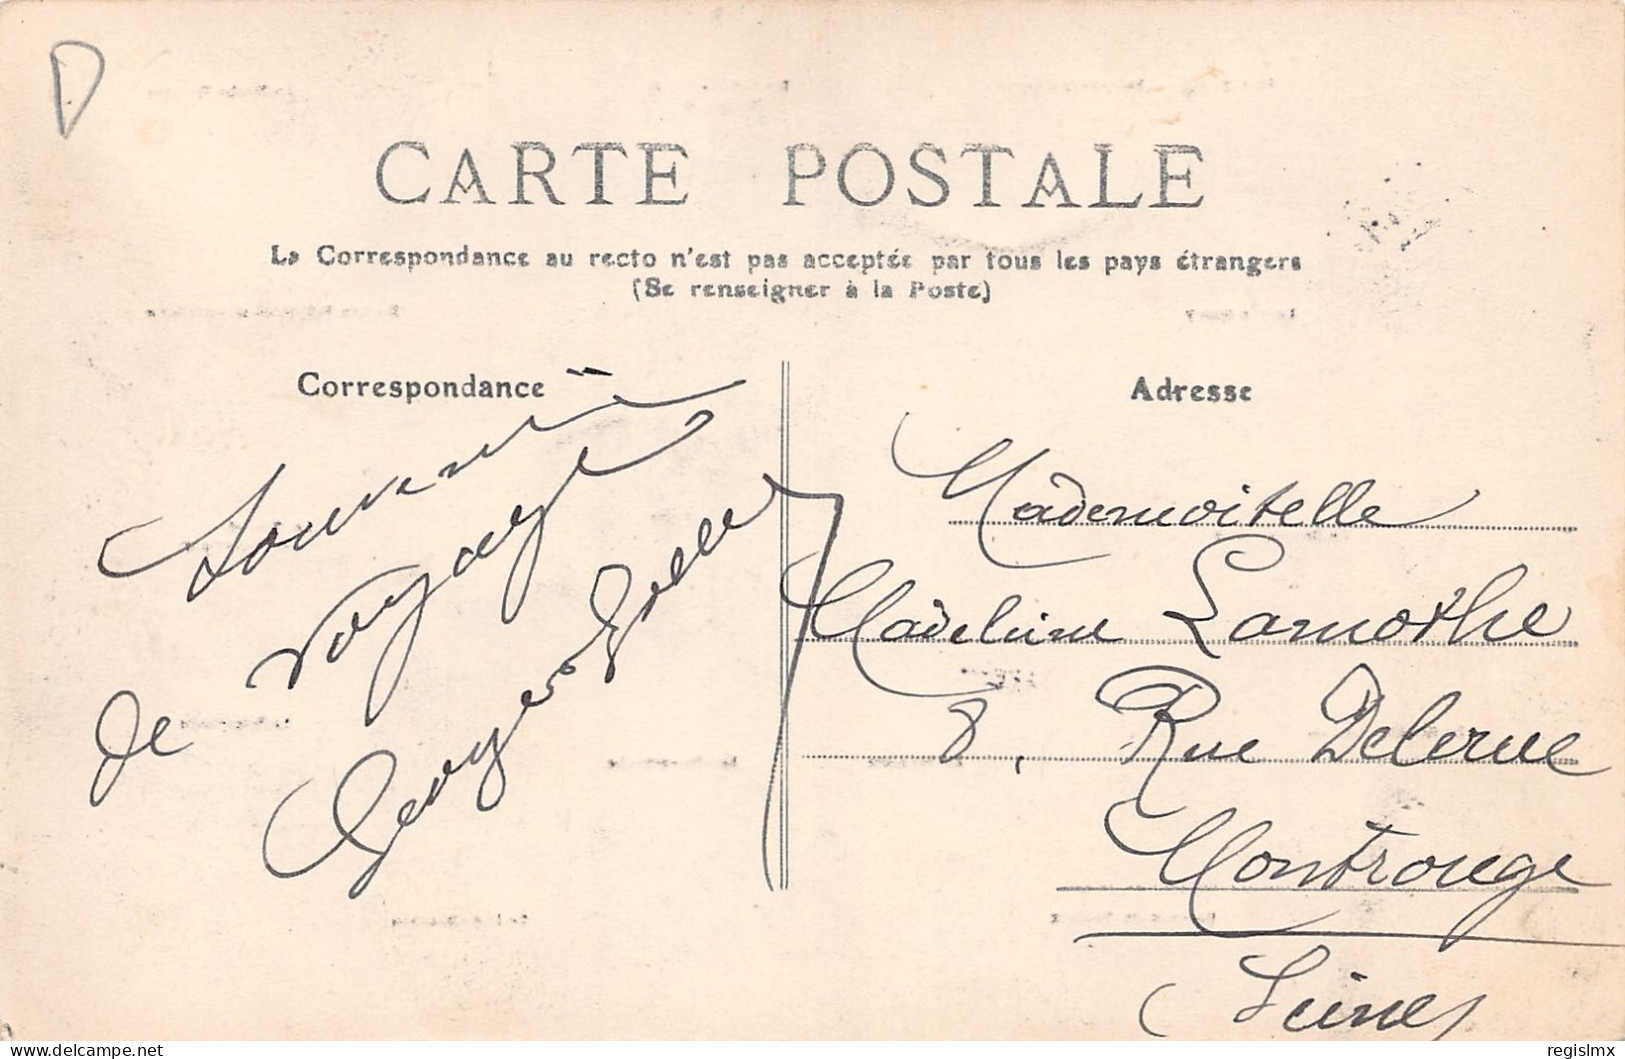 D
CARTE POSTALE
La Correspondance au recto n'est pas acceptée par tous les pays étrangers
(Se renseigner à la Poste)
Correspondance
Souvenir
de voyage
Georges
Adresse
Mademoiselle
Madeleine Lamothe
8, Rue Delerue
Montrouge
Seine
delcampe.net
regislmx